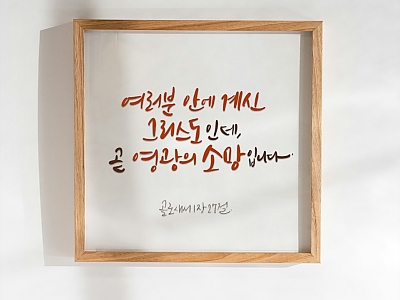 여러분 안에 계신
그리스도인데,
곧 영광의 소망입니다
골로새서 1장 27절